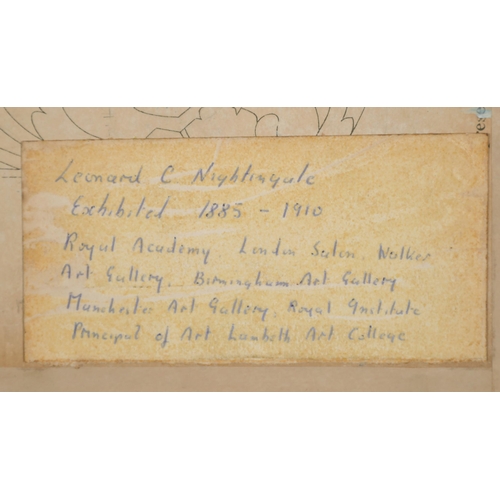 Leonard C Nightingale
Exhibited 1885 - 1910
Royal Academy London Salon, Walker
Art Gallery, Birmingham Art Gallery
Manchester Art Gallery, Royal Institute
Principal of Art Lambeth Art College